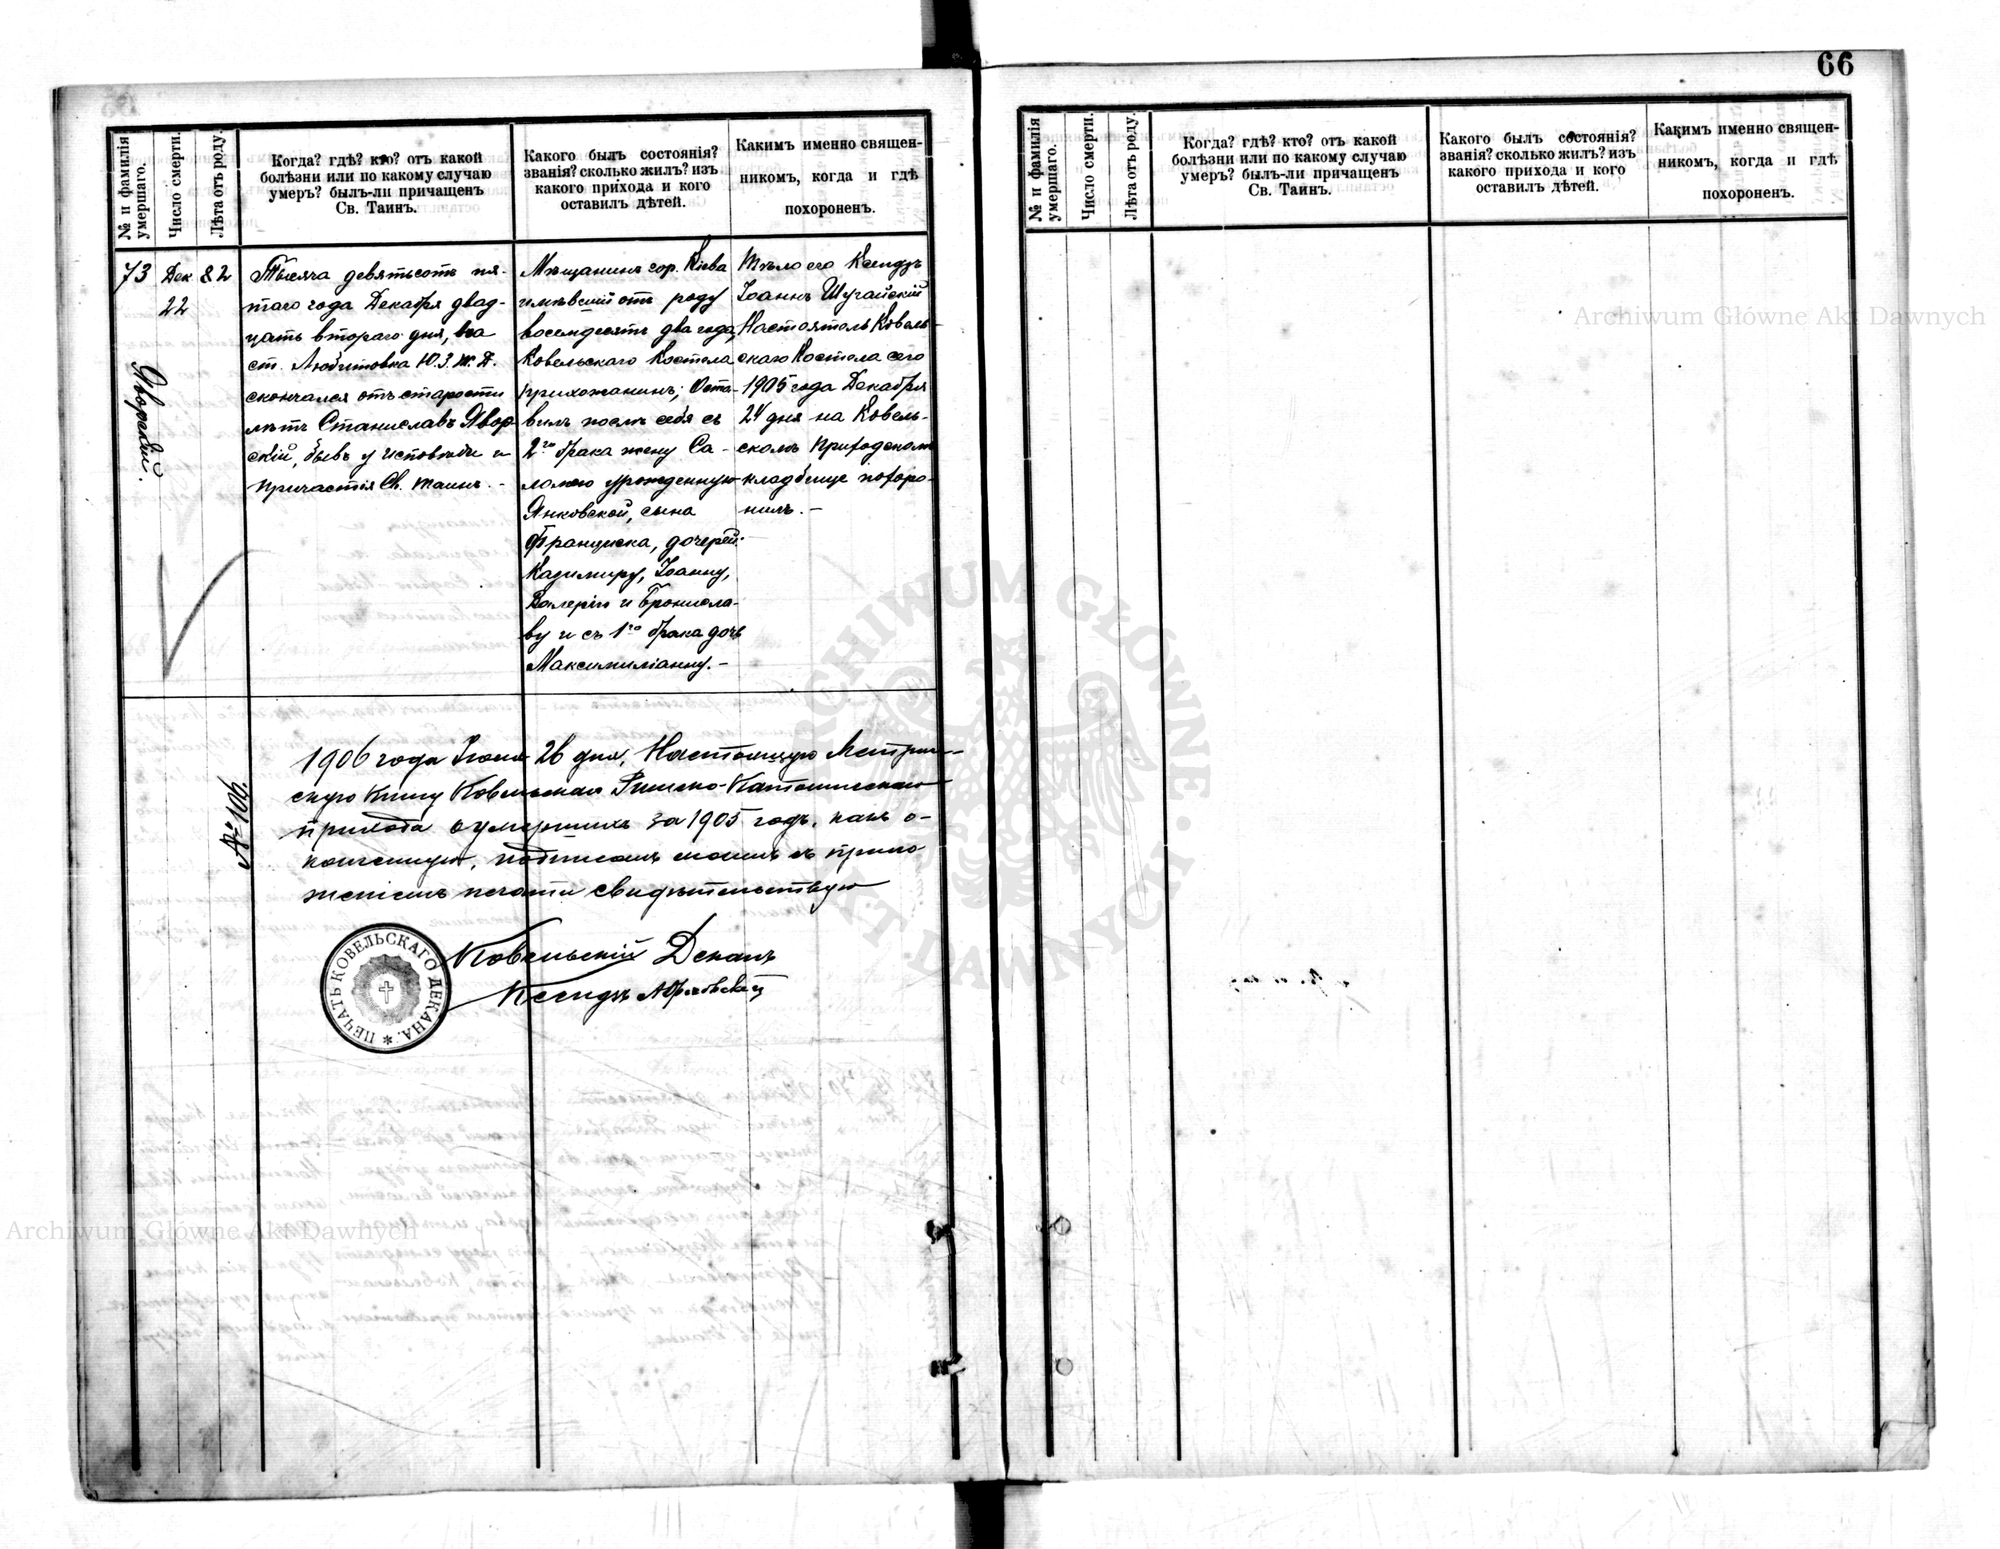 66
№ и фамилія
умершаго.
Число смерти.
Лѣта отъ роду.
Когда? гдѣ? кто? отъ какой
болѣзни или по какому случаю
умеръ? былъ-ли причащенъ
Св. Таинъ.
Какого былъ состоянія?
званія? сколько жилъ? изъ
какого прихода и кого
оставилъ дѣтей.
Какимъ именно священ-
никомъ, когда и гдѣ
похороненъ.
73
Дек
22
82
Яворскій.
Тысяча девятьсотъ пя-
таго года Декабря двад-
цать втораго дня, на
ст. Любитовка Ю.З.ж.д.
скончался отъ старости
лѣтъ Станиславъ Явор
скій, бывъ у исповѣди и
причастія Св. Таинъ. -
Мѣщанинъ гор. Кіева
имѣвшій отъ роду
восемдесятъ два года,
Ковельскаго Костела
прихожанинъ; Оста-
вилъ послѣ себя съ
2го брака жену Са-
ломею урожденную
Янковской, сына
Франциска, дочерей:
Казимиру, Іоанну,
Валерію и Бронисла-
ву и съ 1го брака дочь
Максимиліанну. -
Тѣло его Ксендзъ
Іоаннъ Шугайскій
Настоятель Ковель-
скаго Костела сего
1905 года Декабря
24 дня на Ковель-
скомъ Приходскомъ
кладбищѣ похоро-
нилъ. -
№ 106.
1906 года Іюня 26 дня, Настоящую Метриче-
скую Книгу Ковельскаго Римско-Католическаго
прихода о умершихъ за 1905 годъ, какъ о-
конченную, подписомъ моимъ съ прило
женіемъ печати свидѣтельствую
Ковельскій Деканъ
Ксендзъ
ПЕЧАТЬ КОВЕЛЬСКАГО ДЕКАНА. *
Когда? гдѣ? кто? отъ какой
болѣзни или по какому случаю
умеръ? былъ-ли причащенъ
Св. Таинъ.
№ и фамилія
умершаго.
Число смерти.
Лѣта отъ роду.
Какого былъ состоянія?
званія? сколько жилъ? изъ
какого прихода и кого
оставилъ дѣтей.
Какимъ именно священ-
никомъ, когда и гдѣ
похороненъ.
Archiwum Główne Akt Dawnych
ARCHIWUM GŁÓWNE AKT DAWNYCH
Archiwum Główne Akt Dawnych